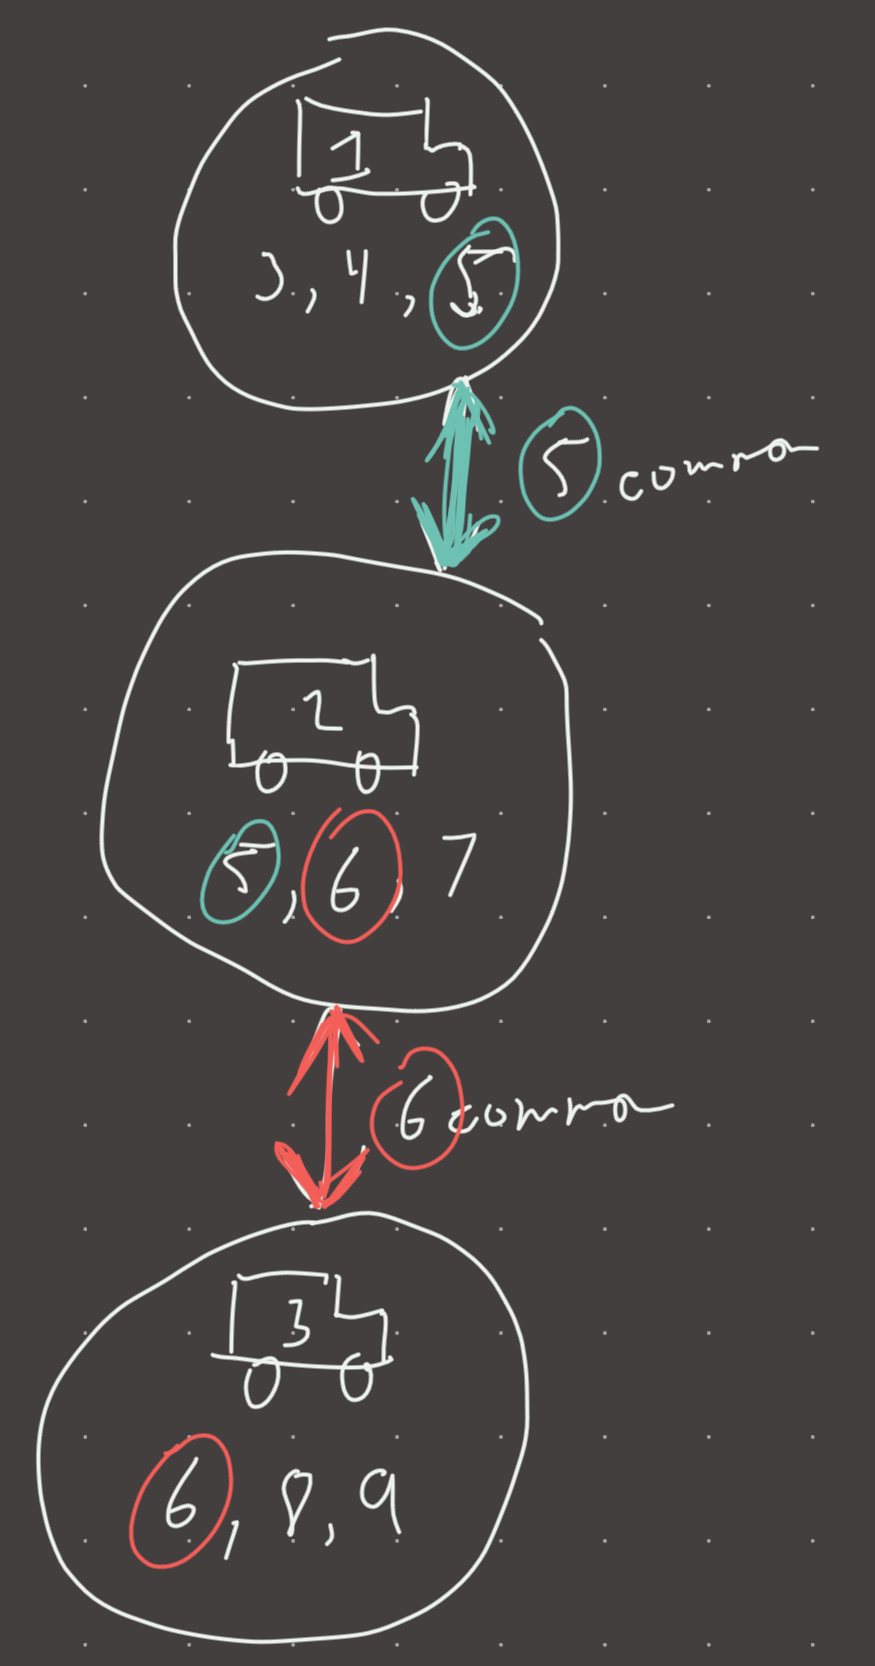 1
3, 4, 5
5 common
2
5, 6, 7
6 common
3
6, 8, 9